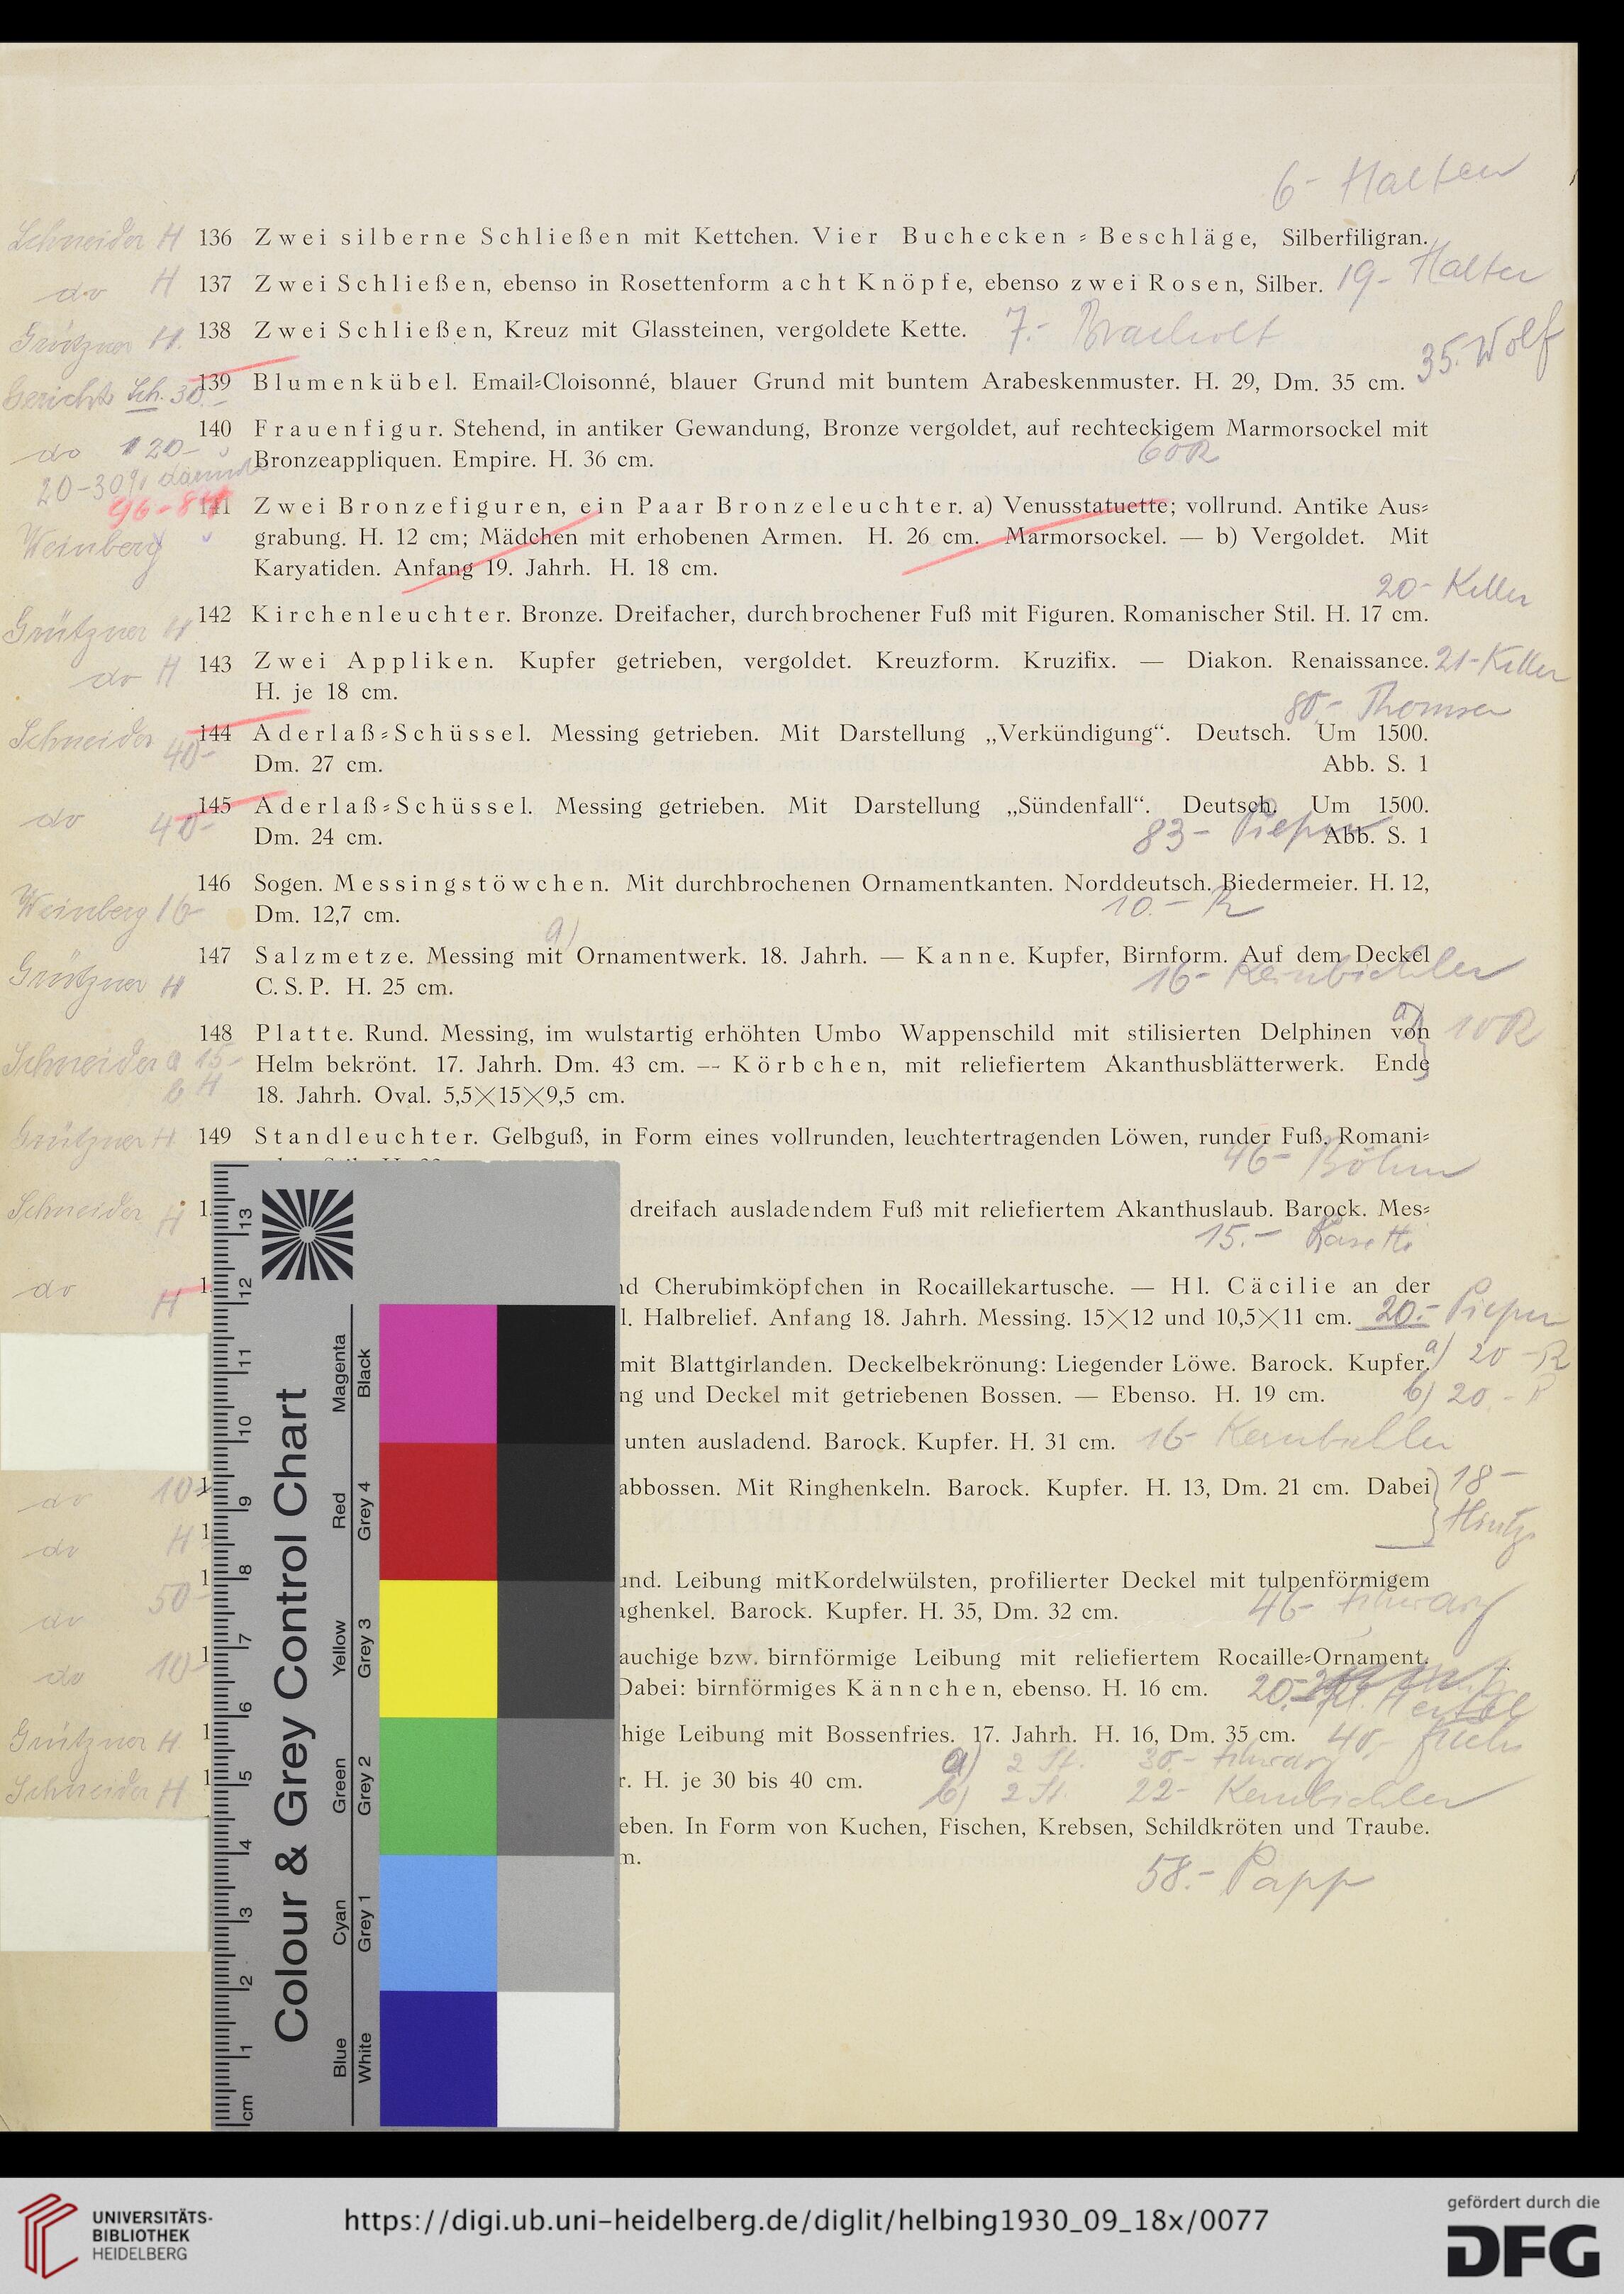 6- Halter
Schneider H 136 Zwei silberne Schließen mit Kettchen. Vier Buchecken⸗Beschläge, Silberfiligran.
do H 137 Zwei Schließen, ebenso in Rosettenform acht Knöpfe, ebenso zwei Rosen, Silber. 19- Halter
Grützner H. 138 Zwei Schließen, Kreuz mit Glassteinen, vergoldete Kette. 7.-
35. Wolf
139 Blumenkübel. Email⸗Cloisonné, blauer Grund mit buntem Arabeskenmuster. H. 29, Dm. 35 cm.
do 120- 140 Frauenfigur. Stehend, in antiker Gewandung, Bronze vergoldet, auf rechteckigem Marmorsockel mit
Bronzeappliquen. Empire. H. 36 cm. 60R
20-30%
96-84
141 Zwei Bronzefiguren, ein Paar Bronzeleuchter. a) Venusstatuette; vollrund. Antike Aus⸗
Weinberg grabung. H. 12 cm; Mädchen mit erhobenen Armen. H. 26 cm. Marmorsockel. — b) Vergoldet. Mit
Karyatiden. Anfang 19. Jahrh. H. 18 cm.
20- Keller
Grützner H 142 Kirchenleuchter. Bronze. Dreifacher, durchbrochener Fuß mit Figuren. Romanischer Stil. H. 17 cm.
do H 143 Zwei Appliken. Kupfer getrieben, vergoldet. Kreuzform. Kruzifix. — Diakon. Renaissance. 21- Keller
H. je 18 cm.
80.- Thomsen
Schneider 40- 144 Aderlaß⸗Schüssel. Messing getrieben. Mit Darstellung „Verkündigung“. Deutsch. Um 1500.
Dm. 27 cm. Abb. S. 1
do 40- 145 Aderlaß⸗Schüssel. Messing getrieben. Mit Darstellung „Sündenfall“. Deutsch. Um 1500.
Dm. 24 cm. 83- Pieper Abb. S. 1
146 Sogen. Messingstöwchen. Mit durchbrochenen Ornamentkanten. Norddeutsch. Biedermeier. H. 12,
Weinberg Dm. 12,7 cm. 10.- R
a)
Grützner H 147 Salzmetze. Messing mit Ornamentwerk. 18. Jahrh. — Kanne. Kupfer, Birnform. Auf dem Deckel
C. S. P. H. 25 cm. 16- Kernbichler
148 Platte. Rund. Messing, im wulstartig erhöhten Umbo Wappenschild mit stilisierten Delphinen von a) 10R
Schneider a 15- Helm bekrönt. 17. Jahrh. Dm. 43 cm. — Körbchen, mit reliefiertem Akanthusblätterwerk. Ende
b H 18. Jahrh. Oval. 5,5×15×9,5 cm.
Grützner H 149 Standleuchter. Gelbguß, in Form eines vollrunden, leuchtertragenden Löwen, runder Fuß. Romani⸗
46- Böhm
Schneider H 1 dreifach ausladendem Fuß mit reliefiertem Akanthuslaub. Barock. Mes⸗
15.-
do H 1 nd Cherubimköpfchen in Rocaillekartusche. — Hl. Cäcilie an der
l. Halbrelief. Anfang 18. Jahrh. Messing. 15×12 und 10,5×11 cm. 20.- Pieper
mit Blattgirlanden. Deckelbekrönung: Liegender Löwe. Barock. Kupfer. a) 20 - R
ng und Deckel mit getriebenen Bossen. — Ebenso. H. 19 cm. b) 20.- R
unten ausladend. Barock. Kupfer. H. 31 cm. 16- Kernbichler
do 10- 1 abbossen. Mit Ringhenkeln. Barock. Kupfer. H. 13, Dm. 21 cm. Dabei 18-
do H 1
do 50- 1 und. Leibung mitKordelwülsten, profilierter Deckel mit tulpenförmigem
aghenkel. Barock. Kupfer. H. 35, Dm. 32 cm. 46-
do 10- 1 auchige bzw. birnförmige Leibung mit reliefiertem Rocaille⸗Ornament.
Dabei: birnförmiges Kännchen, ebenso. H. 16 cm. 20.-
Grützner H. 1 hige Leibung mit Bossenfries. 17. Jahrh. H. 16, Dm. 35 cm. 40.-
a) 2 St. 30.-
Schneider H 1 r. H. je 30 bis 40 cm. b) 2 St. 22- Kernbichler
eben. In Form von Kuchen, Fischen, Krebsen, Schildkröten und Traube.
m. 58.- Papp
Colour & Grey Control Chart
Magenta Black
Red Grey 4
Yellow Grey 3
Green Grey 2
Cyan Grey 1
Blue White
13
12
11
10
9
8
7
6
5
4
3
2
1
cm
UNIVERSITÄTS-
BIBLIOTHEK
HEIDELBERG
https://digi.ub.uni-heidelberg.de/diglit/helbing1930_09_18x/0077
gefördert durch die
DFG